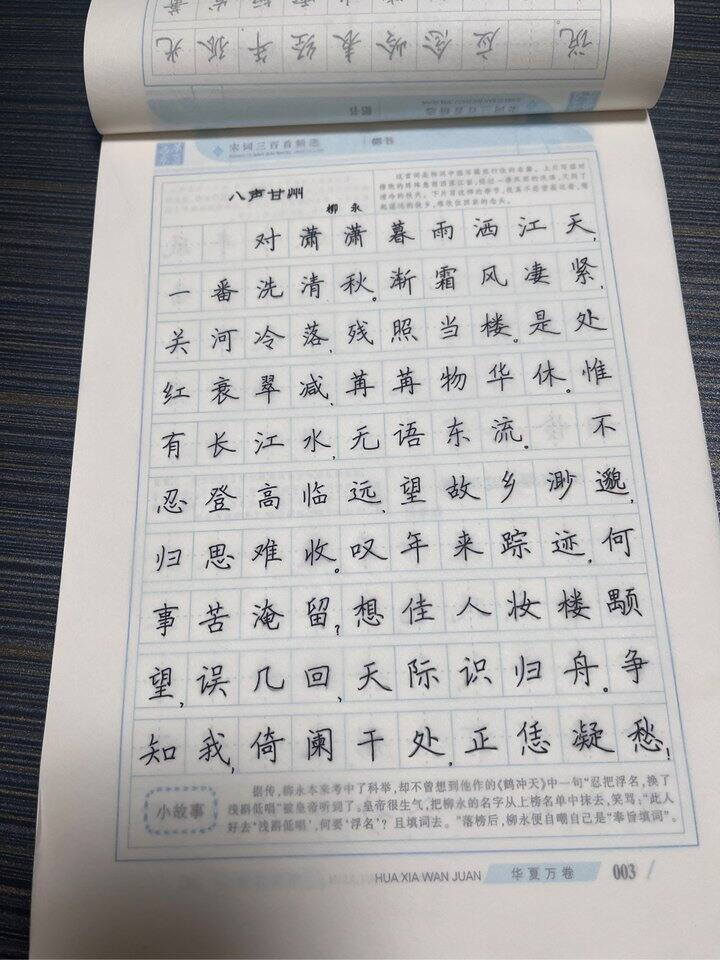 说 应 念 岭 表 经 年 孤 光
宋词三百首精选 楷书
八声甘州
柳永
对萧萧暮雨洒江天,
一番洗清秋。渐霜风凄紧,
关河冷落,残照当楼。是处
红衰翠减,苒苒物华休。惟
有长江水,无语东流。 不
忍登高临远,望故乡渺邈,
归思难收。叹年来踪迹,何
事苦淹留?想佳人妆楼颙
望,误几回,天际识归舟。争
知我,倚阑干处,正恁凝愁!
小故事
据传,柳永本来考中了科举,却不曾想到他作的《鹤冲天》中一句“忍把浮名,换了
浅斟低唱”被皇帝听到了。皇帝很生气,把柳永的名字从上榜名单中抹去,笑骂:“此人
好去‘浅斟低唱’,何要‘浮名’?且填词去。”落榜后,柳永便自嘲自己是“奉旨填词”。
HUA XIA WAN JUAN 华夏万卷 003